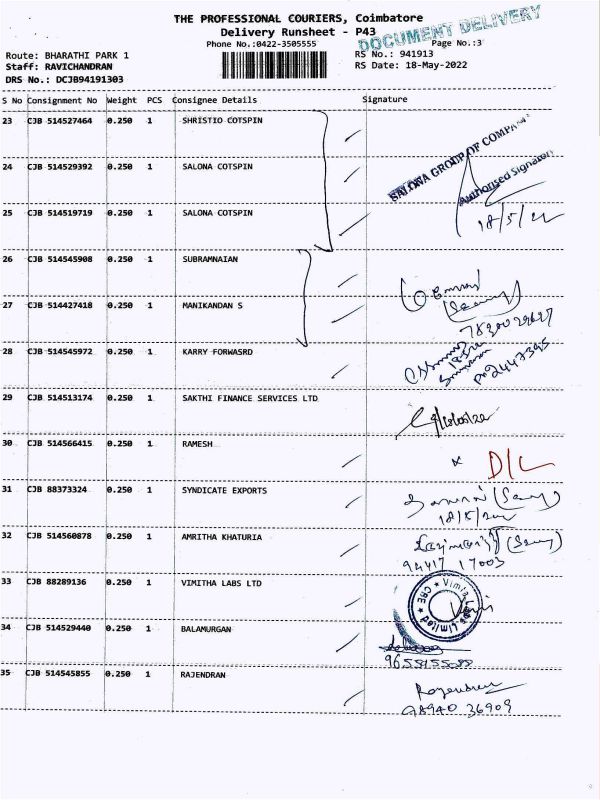 THE PROFESSIONAL COURIERS, Coimbatore
Delivery Runsheet - P43
DOCUMENT DELIVERY
Phone No.:0422-3505555
Page No.:3
Route: BHARATHI PARK 1
RS No.: 941913
Staff: RAVICHANDRAN
RS Date: 18-May-2022
DRS No.: DCJB94191303
S No Consignment No Weight PCS Consignee Details Signature
23 CJB 514527464 0.250 1 SHRISTIO COTSPIN
SALONA GROUP OF COMPA
24 CJB 514529392 0.250 1 SALONA COTSPIN
Authorised Signator
25 CJB 514519719 0.250 1 SALONA COTSPIN
18/5/22
26 CJB 514545908 0.250 1 SUBRAMNAIAN
27 CJB 514427418 0.250 1 MANIKANDAN S
28 CJB 514545972 0.250 1 KARRY FORWASRD
29 CJB 514513174 0.250 1 SAKTHI FINANCE SERVICES LTD
30 CJB 514566415 0.250 1 RAMESH
D/L
31 CJB 88373324 0.250 1 SYNDICATE EXPORTS
32 CJB 514560878 0.250 1 AMRITHA KHATURIA
94417 17003
33 CJB 88289136 0.250 1 VIMITHA LABS LTD
CBE
34 CJB 514529440 0.250 1 BALAMURGAN
35 CJB 514545855 0.250 1 RAJENDRAN
Rajendran
98940 36909